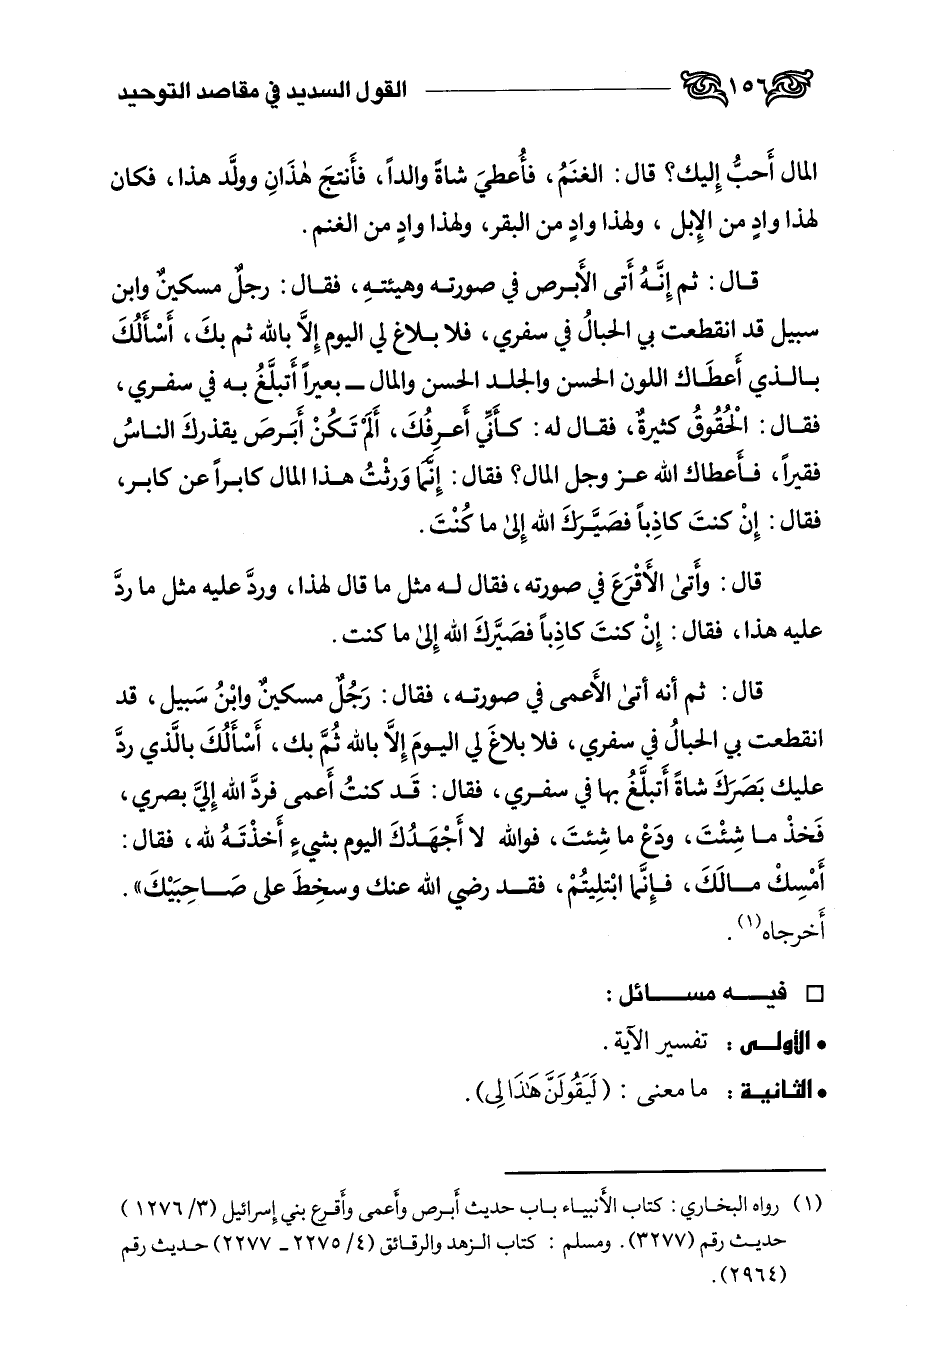 ١٥٦ القول السديد في مقاصد التوحيد
المال أَحبُّ إليك؟ قال: الغنَمُ، فأُعطيَ شاةً والداً، فأَنتجَ هٰذَانِ وولَّد هذا، فكان
لهذا وادٍ من الإبل، ولهذا وادٍ من البقر، ولهذا وادٍ من الغنم.
قال: ثم إنَّهُ أَتى الأَبرص في صورته وهيئتهِ، فقال: رجلٌ مسكينٌ وابن
سبيل قد انقطعت بي الحبالُ في سفري، فلا بلاغ لي اليوم إلاَّ بالله ثم بكَ، أَسْأَلُكَ
بالذي أَعطَاك اللون الحسن والجلد الحسن والمال ـ بعيراً أَتبلَّغُ به في سفري،
فقال: الْحُقُوقُ كثيرةٌ، فقال له: كأَنِّي أَعرفُكَ، أَلَمْ تَكُنْ أَبرَصَ يقذركَ الناسُ
فقيراً، فأَعطاك الله عز وجل المال؟ فقال: إنَّمَا وَرثْتُ هذا المال كابراً عن كابر،
فقال: إنْ كنتَ كاذِباً فصَيَّرَكَ الله إلىٰ ما كُنْتَ.
قال: وأَتىٰ الأَقْرَعَ في صورته، فقال له مثل ما قال لهذا، وردَّ عليه مثل ما ردَّ
عليه هذا، فقال: إنْ كنتَ كاذِباً فصَيَّركَ الله إلىٰ ما كنت.
قال: ثم أنه أتىٰ الأَعمى في صورته، فقال: رَجُلٌ مسكينٌ وابْنُ سَبيل، قد
انقطعت بي الحبالُ في سفري، فلا بلاغَ لي اليومَ إلاَّ بالله ثُمَّ بك، أَسْأَلُكَ بالَّذي ردَّ
عليك بَصَرَكَ شاةً أَتبلَّغُ بها في سفري، فقال: قَد كنتُ أَعمى فردَّ الله إليَّ بصري،
فَخذْ ما شِئْتَ، ودَعْ ما شِئتَ، فوالله لا أَجْهَدُكَ اليوم بشيءٍ أَخذْتَهُ لله، فقال:
أَمْسِكْ مالَكَ، فإنَّمَا ابْتلِيتُمْ، فقد رضي الله عنك وسخِطَ على صَاحِبَيْكَ».
أَخرجاه(١).
□ فيه مسائل:
• الأولى: تفسير الآية.
• الثانية: ما معنى: (لَيَقُولَنَّ هَٰذَا لِي).
(١) رواه البخاري: كتاب الأَنبياء باب حديث أَبرص وأَعمى وأَقرع بني إسرائيل (٣/ ١٢٧٦)
حديث رقم (٣٢٧٧). ومسلم: كتاب الزهد والرقائق (٤/ ٢٢٧٥ ـ ٢٢٧٧) حديث رقم
(٢٩٦٤).